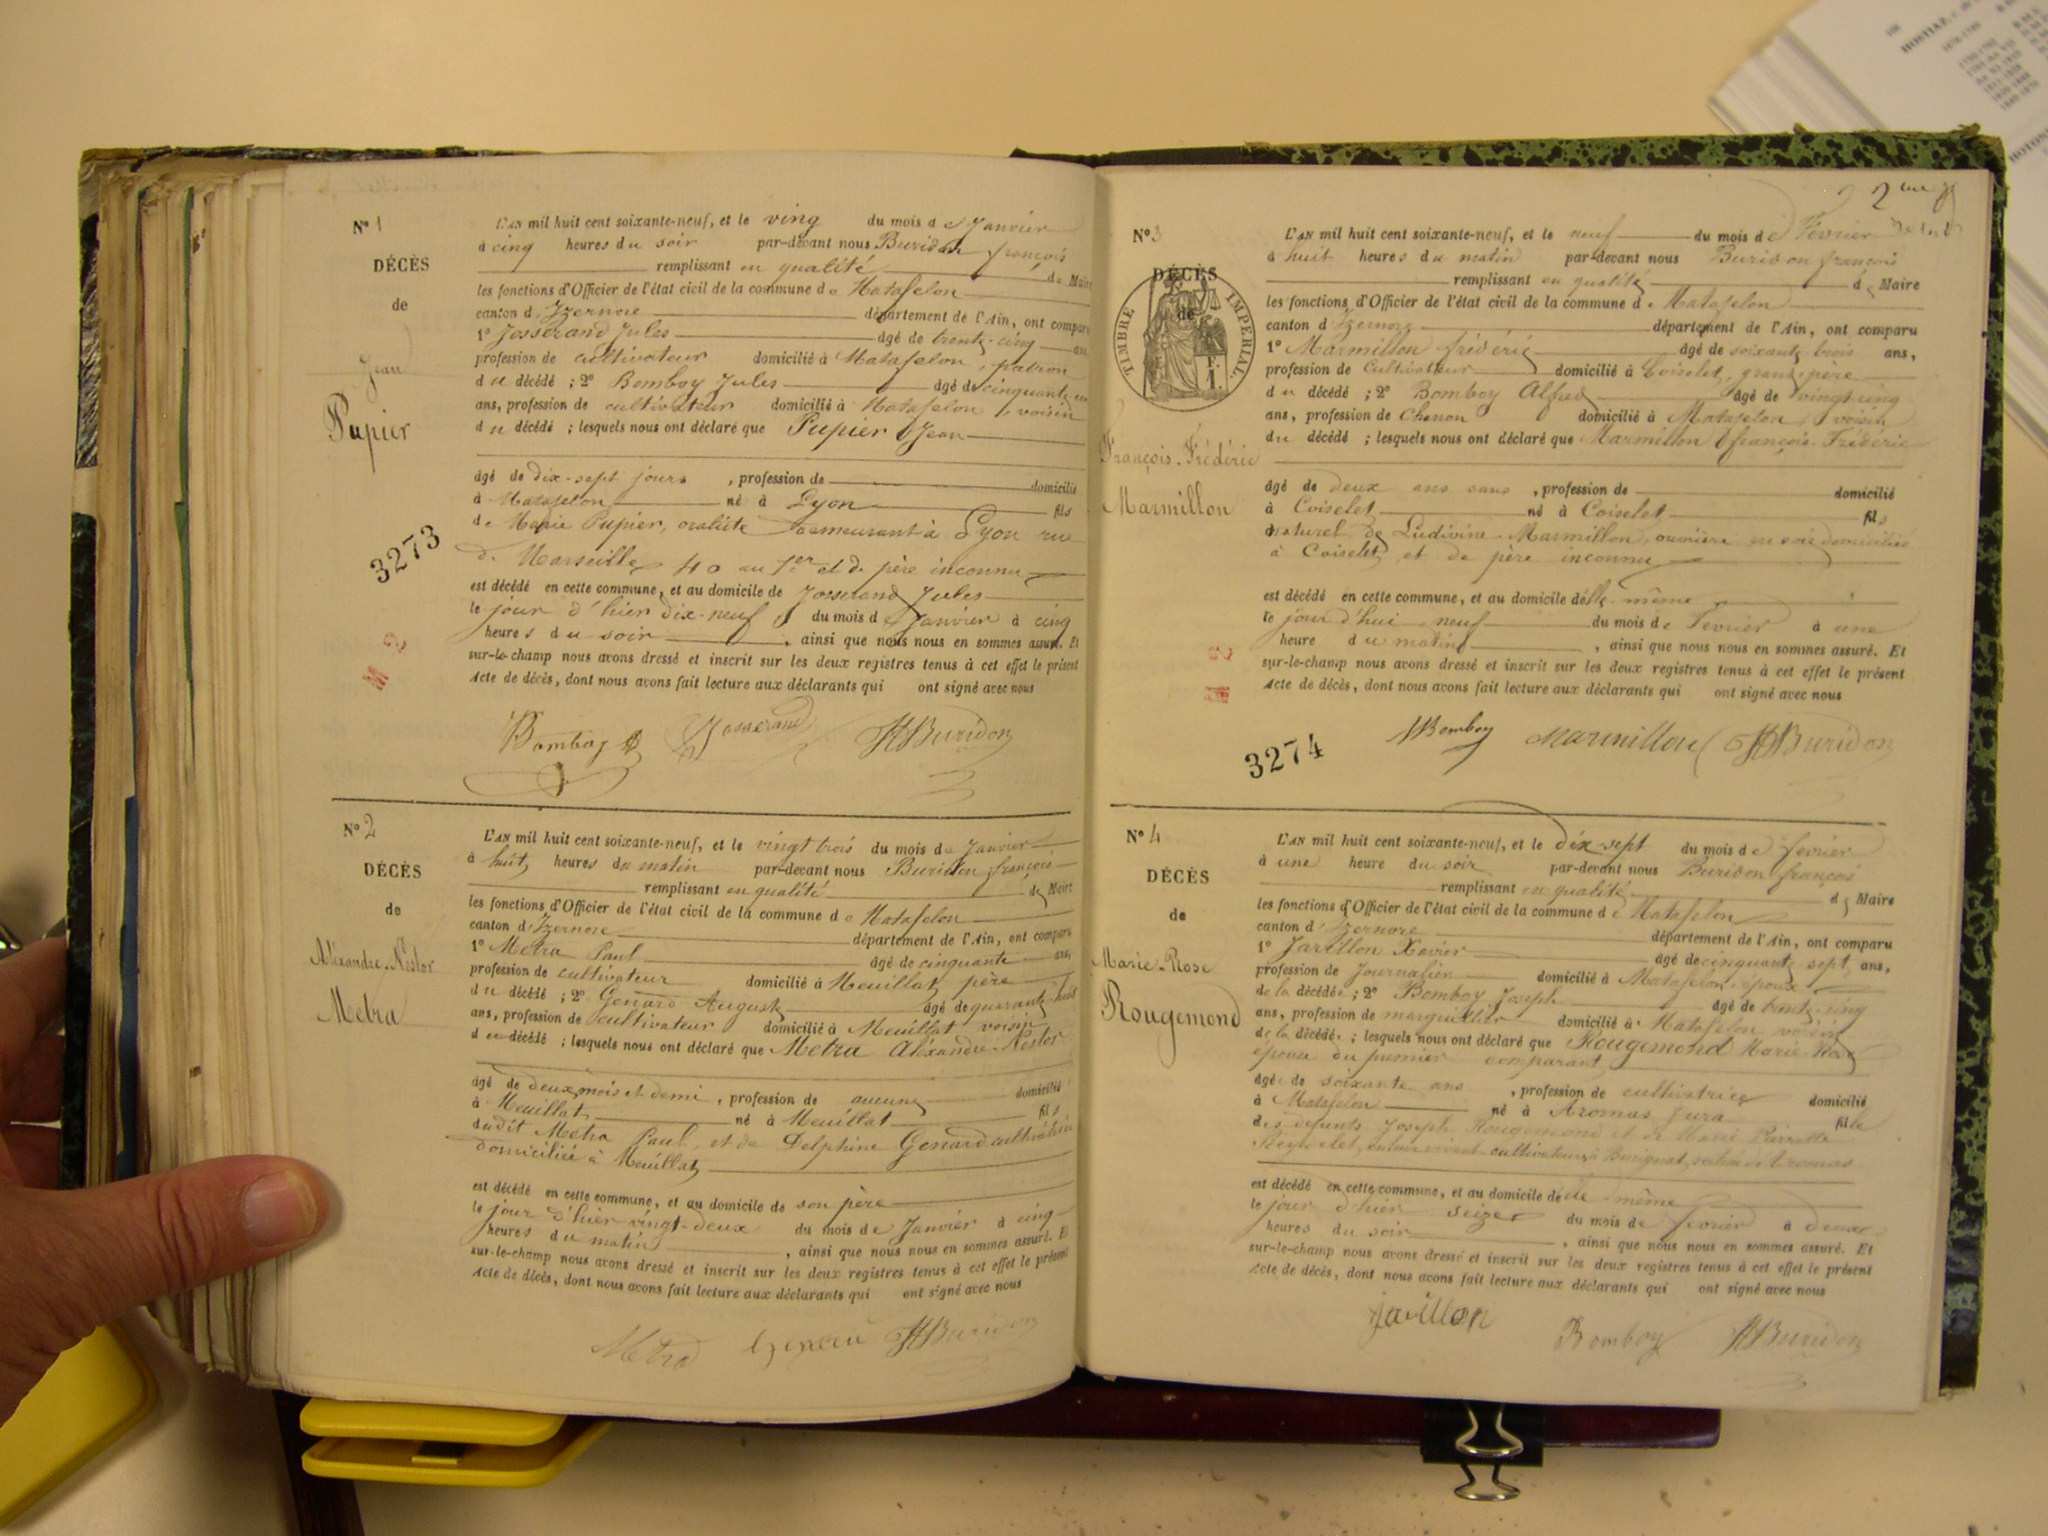 N° 1
DÉCÈS
de
Jean
Pupier
3273
L'AN mil huit cent soixante-neuf, et le ving du mois de Janvier
à cinq heures du soir par-devant nous Buridon françois
remplissant en qualité de Maire
les fonctions d'Officier de l'état civil de la commune de Matafelon
canton d'Izernore département de l'Ain, ont comparu
1° Josserand Jules âgé de trente-cinq ans
profession de cultivateur domicilié à Matafelon, patron
du décédé ; 2° Bomboy Jules âgé de cinquante-un
ans, profession de cultivateur domicilié à Matafelon, voisin
du décédé ; lesquels nous ont déclaré que Pupier Jean
âgé de dix-sept jours, profession de domicilié
à Matafelon né à Lyon fils
de Marie Pupier, demeurant à Lyon rue
de Marseille 40 au 1er et de père inconnu
est décédé en cette commune, et au domicile de Josserand Jules
le jour d'hier dix-neuf du mois de Janvier à cinq
heures du soir, ainsi que nous nous en sommes assuré. Et
sur-le-champ nous avons dressé et inscrit sur les deux registres tenus à cet effet le présent
Acte de décès, dont nous avons fait lecture aux déclarants qui ont signé avec nous
Bomboy Josserand Buridon
N° 2
DÉCÈS
de
Aléxandre-Nestor
Metra
L'AN mil huit cent soixante-neuf, et le vingt trois du mois de Janvier
à huit heures du matin par-devant nous Buridon françois
remplissant en qualité de Maire
les fonctions d'Officier de l'état civil de la commune de Matafelon
canton d'Izernore département de l'Ain, ont comparu
1° Metra Paul âgé de cinquante ans,
profession de cultivateur domicilié à Heuillat, père
du décédé ; 2° Genard Auguste âgé de quarante-huit
ans, profession de cultivateur domicilié à Meuillat voisin
du décédé ; lesquels nous ont déclaré que Metra Aléxandre-Nestor
âgé de deux mois et demi, profession de aucune domicilié
à Meuillat né à Meuillat fils
dudit Metra Paul et de Delphine Genard cultivatrice
domiciliée à Meuillat
est décédé en cette commune, et au domicile de son père
le jour d'hier vingt-deux du mois de Janvier à cinq
heures du matin, ainsi que nous nous en sommes assuré. Et
sur-le-champ nous avons dressé et inscrit sur les deux registres tenus à cet effet le présent
Acte de décès, dont nous avons fait lecture aux déclarants qui ont signé avec nous
Metra Buridon
N° 3
DÉCÈS
de
TIMBRE IMPÉRIAL
F.
1.
François-Frédéric
Marmillon
3274
L'AN mil huit cent soixante-neuf, et le neuf du mois de Fevrier
à huit heures du matin par-devant nous Buridon françois
remplissant en qualité de Maire
les fonctions d'Officier de l'état civil de la commune de Matafelon
canton d'Izernore département de l'Ain, ont comparu
1° Marmillon frédéric âgé de soixante trois ans,
profession de Cultivateur domicilié à Coiselet, grand-père
du décédé ; 2° Bomboy Alfred âgé de vingt-cinq
ans, profession de domicilié à Matafelon, voisin
du décédé ; lesquels nous ont déclaré que Marmillon françois Frédéric
âgé de deux ans sans, profession de domicilié
à Coiselet né à Coiselet fils
naturel de Ludivine Marmillon, ouvrière en soie domiciliée
à Coiselet et de père inconnu
est décédé en cette commune, et au domicile d'elle-même
le jour d'hui neuf du mois de Fevrier à une
heure du matin, ainsi que nous nous en sommes assuré. Et
sur-le-champ nous avons dressé et inscrit sur les deux registres tenus à cet effet le présent
Acte de décès, dont nous avons fait lecture aux déclarants qui ont signé avec nous
Bomboy Marmillon Buridon
N° 4
DÉCÈS
de
Marie-Rose
Rougemond
L'AN mil huit cent soixante-neuf, et le dix-sept du mois de fevrier
à une heure du soir par-devant nous Buridon françois
remplissant en qualité de Maire
les fonctions d'Officier de l'état civil de la commune de Matafelon
canton d'Izernore département de l'Ain, ont comparu
1° Javillon Xavier âgé de cinquante sept ans,
profession de Journalier domicilié à Matafelon, époux
de la décédée ; 2° Bomboy Joseph âgé de trente-cinq
ans, profession de marguillier domicilié à Matafelon voisin
de la décédée ; lesquels nous ont déclaré que Rougemond Marie-Rose
épouse du premier comparant
âgée de soixante ans, profession de cultivatrice domicilié
à Matafelon né à Aromas Jura fille
des défunts Joseph Rougemond et de Marie Pierrette
cultivateurs à
est décédé en cette commune, et au domicile de elle même
le jour d'hier seize du mois de fevrier à deux
heures du soir, ainsi que nous nous en sommes assuré. Et
sur-le-champ nous avons dressé et inscrit sur les deux registres tenus à cet effet le présent
Acte de décès, dont nous avons fait lecture aux déclarants qui ont signé avec nous
Javillon Bomboy Buridon